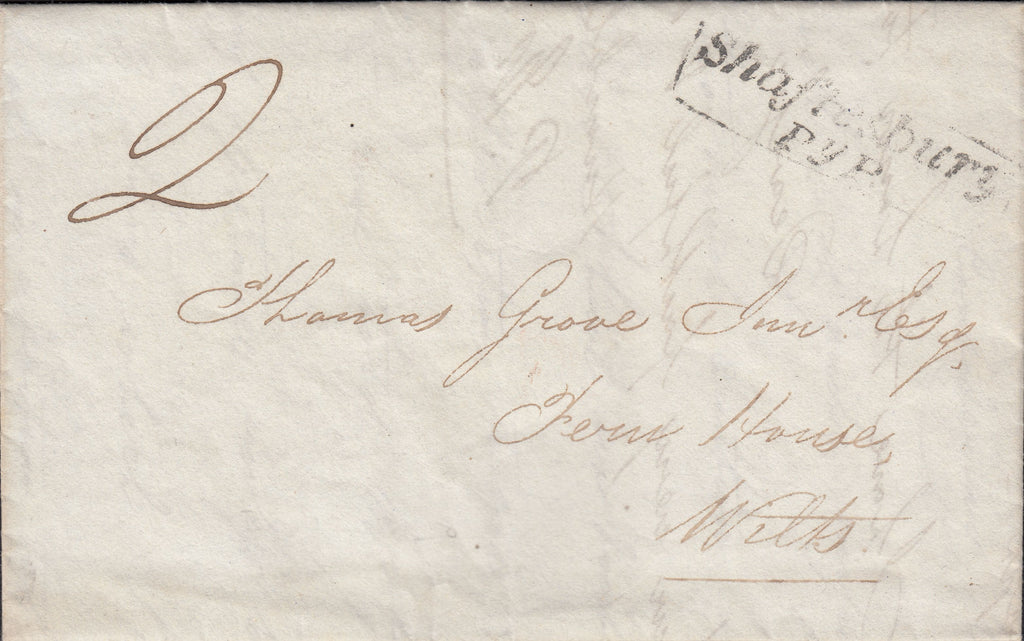 Shaftesbury
Py P.
2
Thomas Grove Junr. Esq.
Fern House,
Wilts